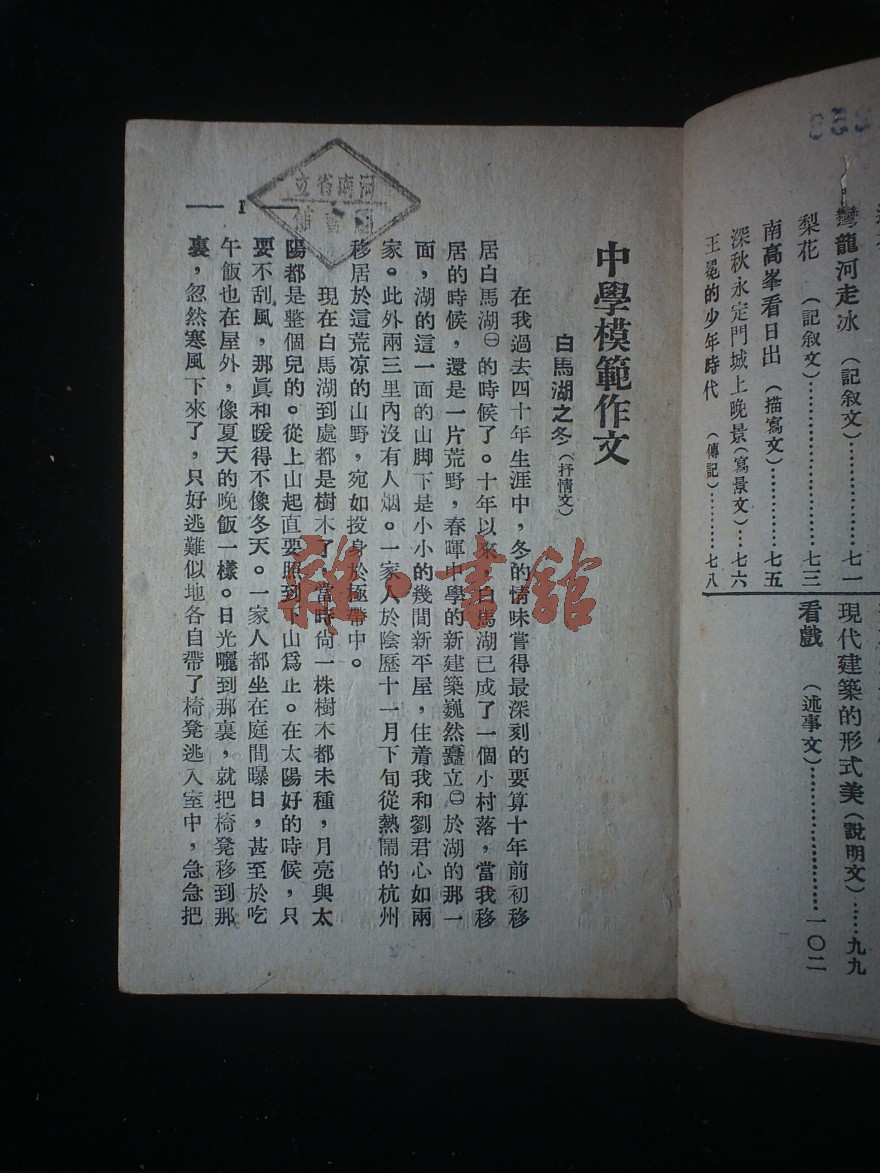 彎龍河走冰（記敘文）………………七一
梨花（記敘文）………………七三
南高峯看日出（描寫文）…………七五
深秋永定門城上晚景（寫景文）…七六
王冕的少年時代（傳記）…………七八
現代建築的形式美（說明文）……九九
看戲（述事文）………………一〇二
中學模範作文
白馬湖之冬（抒情文）
在我過去四十年生涯中，冬的情味嘗得最深刻的要算十年前初移
居白馬湖㊀的時候了。十年以來，白馬湖已成了一個小村落，當我移
居的時候，還是一片荒野，春暉中學的新建築巍然矗立㊁於湖的那一
面，湖的這一面的山脚下是小小的幾間新平屋，住着我和劉君心如兩
家。此外兩三里內沒有人烟。一家人於陰歷十一月下旬從熱鬧的杭州
移居於這荒凉的山野，宛如投身於極帶中。
現在白馬湖到處都是樹木了，當時尙一株樹木都未種，月亮與太
陽都是整個兒的。從上山起直要照到下山爲止。在太陽好的時候，只
要不刮風，那眞和暖得不像冬天。一家人都坐在庭間曝日，甚至於吃
午飯也在屋外，像夏天的晚飯一樣。日光曬到那裏，就把椅凳移到那
裏，忽然寒風下來了，只好逃難似地各自帶了椅凳逃入室中，急急把
1
河南省立
圖書館
雜·書館